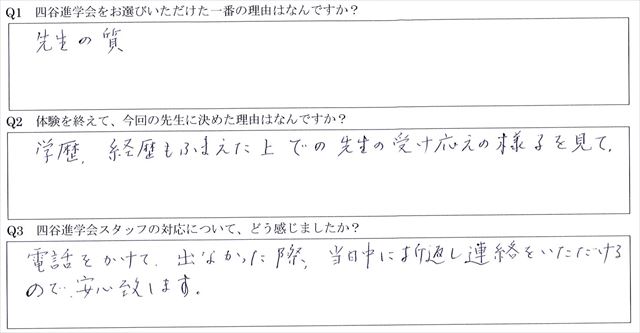 Q1 四谷進学会をお選びいただけた一番の理由はなんですか？
先生の質
Q2 体験を終えて、今回の先生に決めた理由はなんですか？
学歴、経歴もふまえた上での先生の受け応えの様子を見て。
Q3 四谷進学会スタッフの対応について、どう感じましたか？
電話をかけて、出なかった際、当日中に折返し連絡をいただける
ので、安心致します。